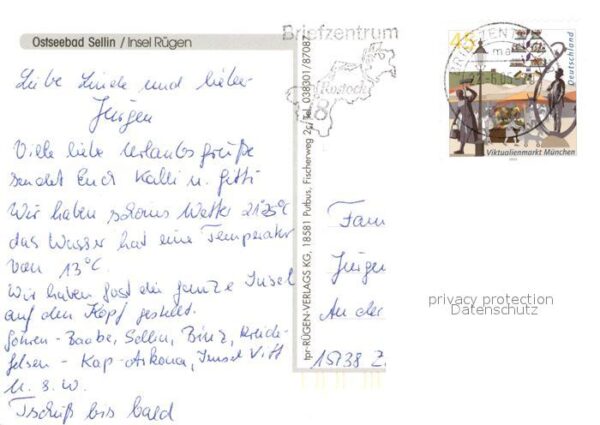 Ostseebad Sellin / Insel Rügen
Liebe Linde und lieber
Jürgen
Viele liebe Urlaubsgrüße
sendet Euch Kalli u. Gitti
Wir haben schönes Wetter 21-25°C
das Wasser hat eine Temperatur
von 13°C.
Wir haben fast die ganze Insel
auf den Kopf gestellt.
Göhren - Baabe, Sellin, Binz, Kreide-
felsen - Kap-Arkona, Insel Vitt
u. s. w.
Tschüß bis bald
Ipr-RÜGEN-VERLAGS KG, 18581 Putbus, Fischerweg 2c, Tel. 038301/87087
Briefzentrum
Rostock
45
Deutschland
Viktualienmarkt München
BRIEFZENTRUM
Fam
Jürgen
An der
15738 Z
privacy protection
Datenschutz